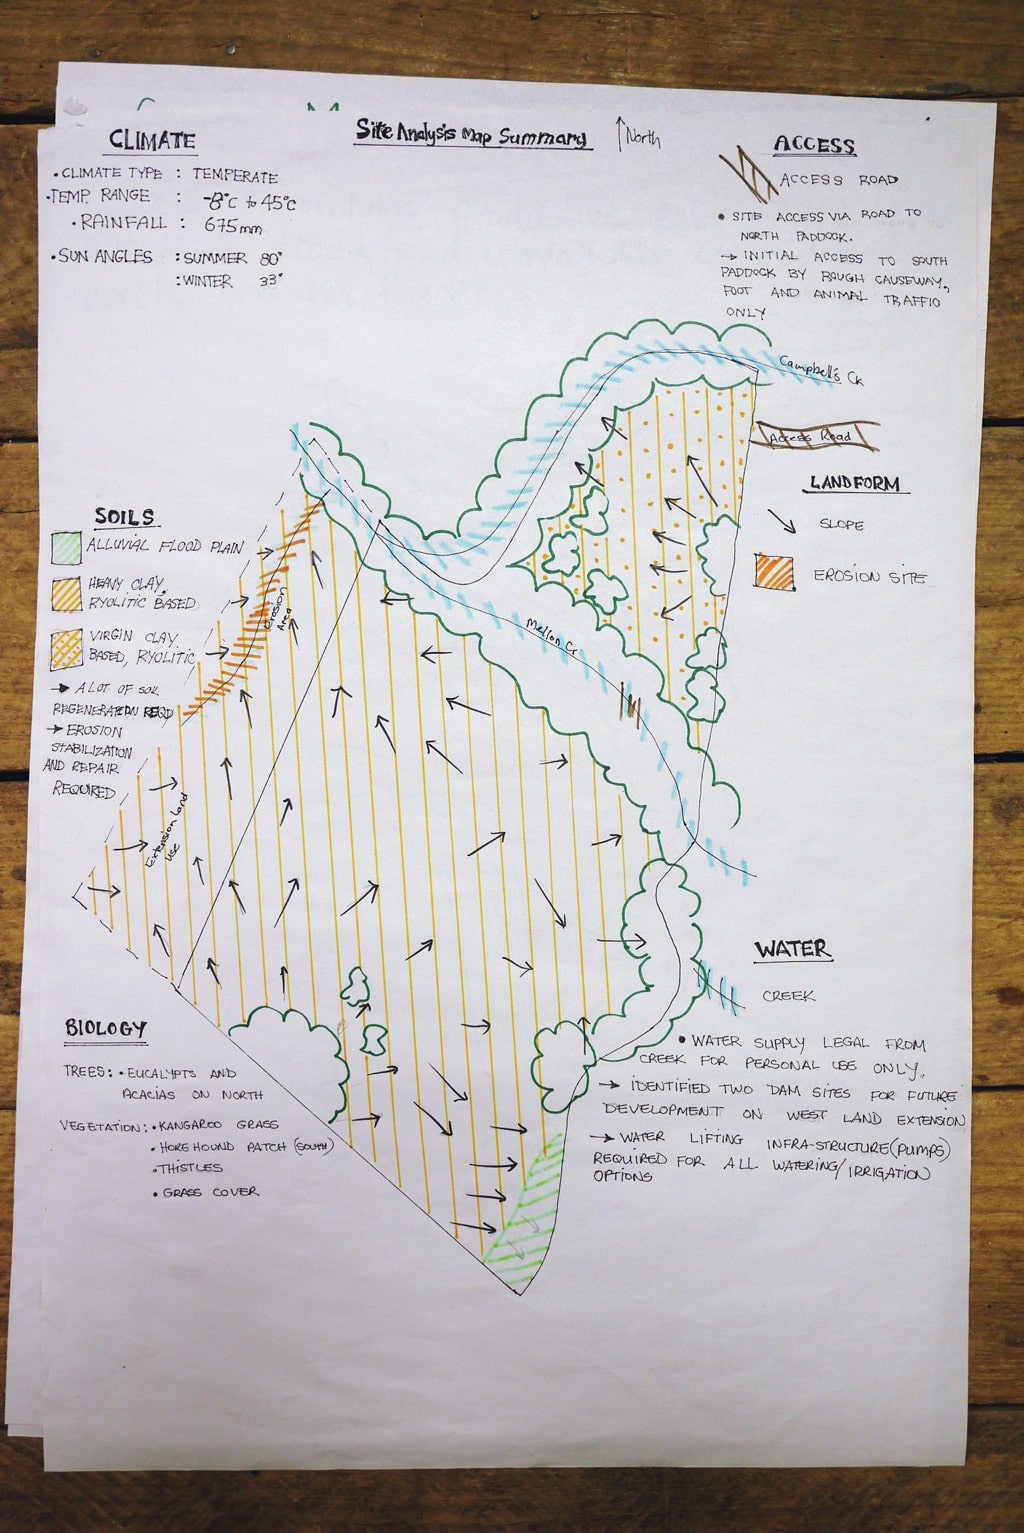 Site Analysis Map Summary
North
CLIMATE
• CLIMATE TYPE : TEMPERATE
• TEMP. RANGE : -8°C to 45°C
• RAINFALL : 675mm
• SUN ANGLES : SUMMER 80°
: WINTER 33°
ACCESS
ACCESS ROAD
• SITE ACCESS VIA ROAD TO
NORTH PADDOCK.
→ INITIAL ACCESS TO SOUTH
PADDOCK BY ROUGH CAUSEWAY,
FOOT AND ANIMAL TRAFFIC
ONLY
Campbell's Ck
Access Road
LANDFORM
SLOPE
EROSION SITE
SOILS
ALLUVIAL FLOOD PLAIN
HEAVY CLAY,
RYOLITIC BASED
VIRGIN CLAY
BASED, RYOLITIC
→ A LOT OF SOIL
REGENERATION REQD
→ EROSION
STABILIZATION
AND REPAIR
REQUIRED
Erosion
Area
Mellon Cr
Extension Land
Use
WATER
CREEK
• WATER SUPPLY LEGAL FROM
CREEK FOR PERSONAL USE ONLY.
→ IDENTIFIED TWO DAM SITES FOR FUTURE
DEVELOPMENT ON WEST LAND EXTENSION
→ WATER LIFTING INFRA-STRUCTURE (PUMPS)
REQUIRED FOR ALL WATERING/IRRIGATION
OPTIONS
BIOLOGY
TREES: • EUCALYPTS AND
ACACIAS ON NORTH
VEGETATION: • KANGAROO GRASS
• HOREHOUND PATCH (SOUTH)
• THISTLES
• GRASS COVER